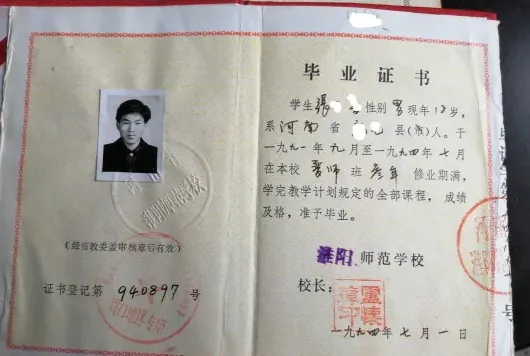 (经省教委盖审核章后有效)
证书登记第 940897 号
毕业证书
学生 张 性别 男 现年 18 岁,
系 河南 省 县(市)人。于
一九九一年九月至一九九四年七月
在本校 普师 班 叁年 修业期满,
学完教学计划规定的全部课程,成绩
及格,准予毕业。
淮阳 师范学校
校长:
一九九四年七月一日